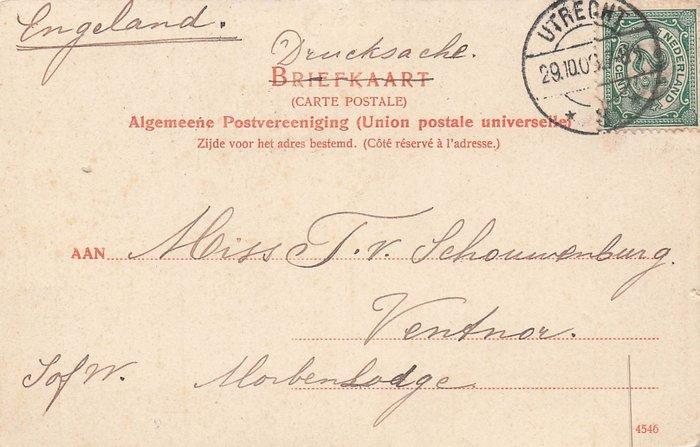 Engeland.
Drucksache.
BRIEFKAART
(CARTE POSTALE)
Algemeene Postvereeniging (Union postale universelle)
Zijde voor het adres bestemd. (Côté réservé à l'adresse.)
UTRECHT
29.10.03
NEDERLAND
2½
CENT
AAN Miss T. v. Schouwenburg.
Ventnor.
I of W. Morbenlodge.
4546